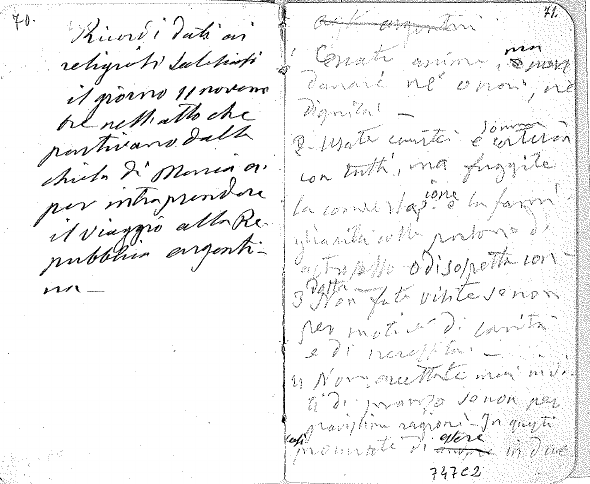 70.
Ricordi dati ai
religiosi Salesiani
il giorno 11 novem
bre nell'atto che
partivano dalla
chiesa di Maria A.
per intraprendere
il viaggio alla Re
pubblica argenti-
na —
71.
argentini
1 Cercate anime, ma non
danari nè onori, nè
dignità —
2 Usate carità e somma cortesia
con tutti, ma fuggite
la conversazione e la fami
gliarità colle persone di
altro sesso o di sospetta con-
dotta —
3 Non fate visite se non
per motivi di carità
e di necessità —
4 Non accettate mai invi-
ti di pranzo se non per
gravissime ragioni — In questi
casi procurate di essere in due
747C2